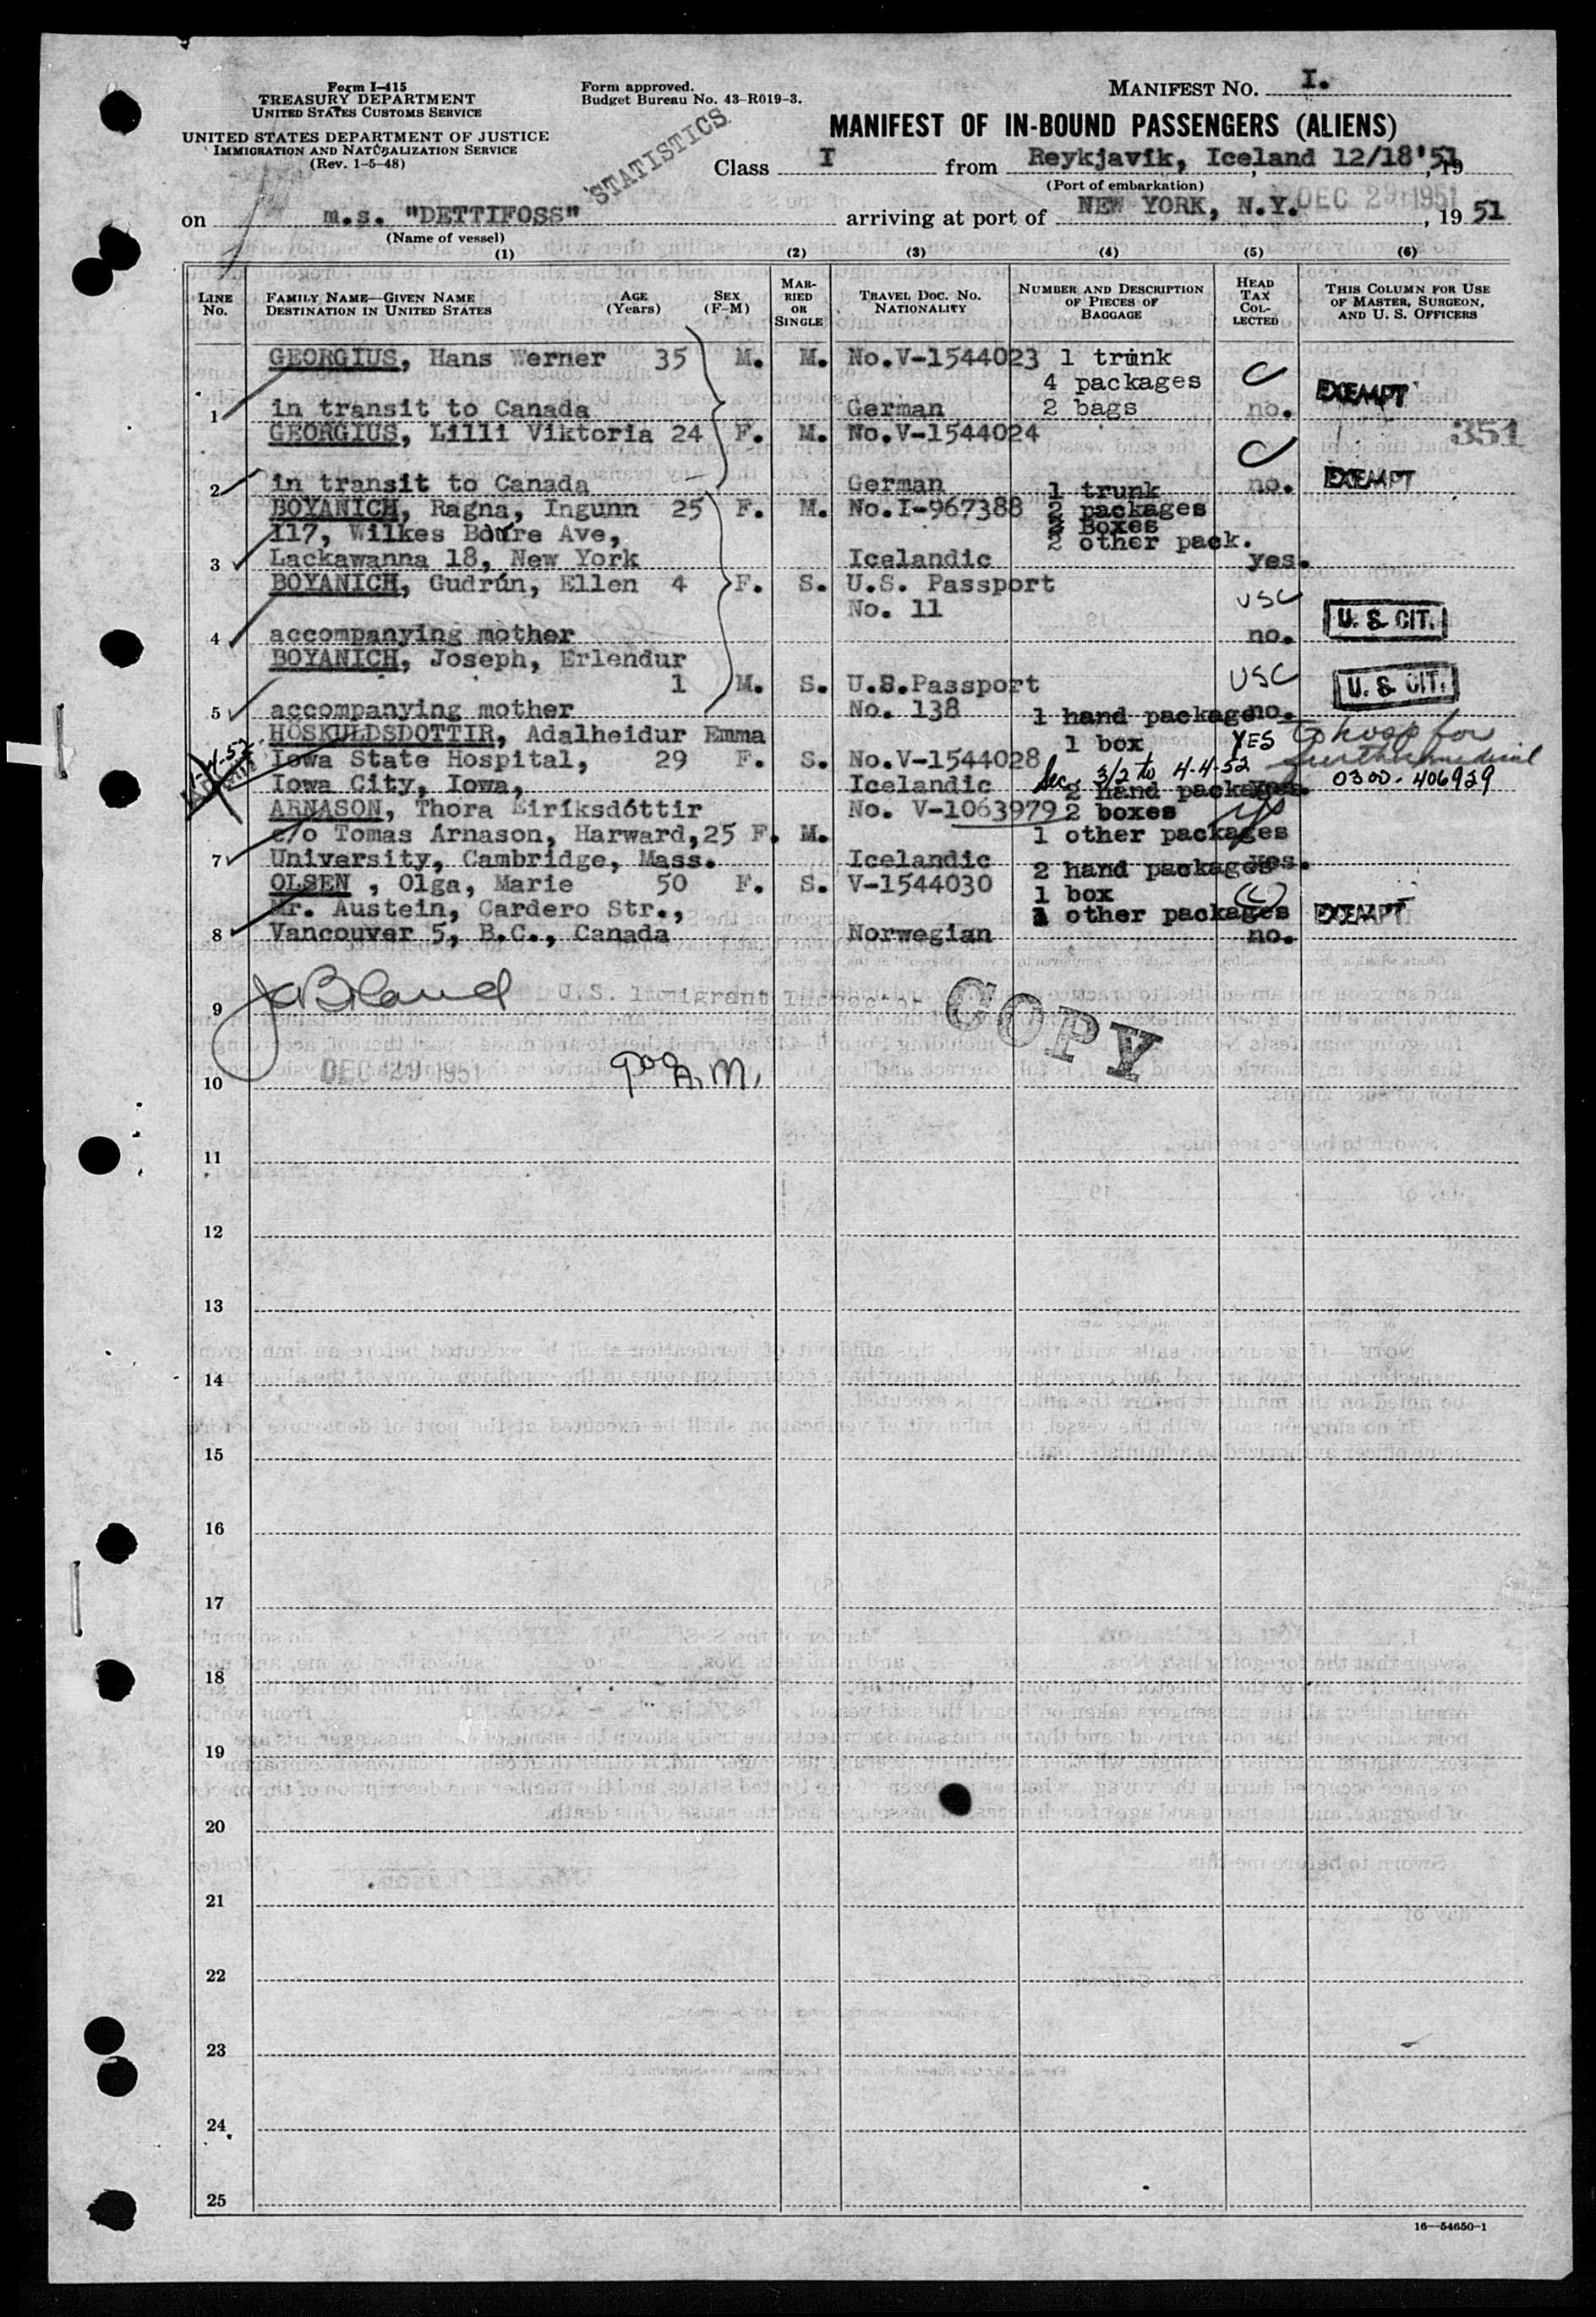 Form I-415
TREASURY DEPARTMENT
UNITED STATES CUSTOMS SERVICE
UNITED STATES DEPARTMENT OF JUSTICE
IMMIGRATION AND NATURALIZATION SERVICE
(Rev. 1-5-48)
Form approved.
Budget Bureau No. 43-R019-3.
STATISTICS
MANIFEST NO. I.
MANIFEST OF IN-BOUND PASSENGERS (ALIENS)
Class I from Reykjavik, Iceland 12/18'51, 19
(Port of embarkation)
on m.s. "DETTIFOSS" arriving at port of NEW YORK, N.Y. DEC 29 1951, 1951
(Name of vessel)
(1) (2) (3) (4) (5) (6)
LINE No.
FAMILY NAME—GIVEN NAME
DESTINATION IN UNITED STATES
AGE (Years)
SEX (F-M)
MARRIED OR SINGLE
TRAVEL DOC. NO.
NATIONALITY
NUMBER AND DESCRIPTION OF PIECES OF BAGGAGE
HEAD TAX COLLECTED
THIS COLUMN FOR USE OF MASTER, SURGEON, AND U. S. OFFICERS
GEORGIUS, Hans Werner 35 M. M. No.V-1544023 1 trunk
4 packages
1 in transit to Canada German 2 bags no. EXEMPT
351
GEORGIUS, Lilli Viktoria 24 F. M. No.V-1544024
2 in transit to Canada German no. EXEMPT
1 trunk
BOYANICH, Ragna, Ingunn 25 F. M. No.I-967388 2 packages
117, Wilkes Barre Ave, 2 Boxes
2 other pack.
3 Lackawanna 18, New York Icelandic yes.
BOYANICH, Gudrún, Ellen 4 F. S. U.S. Passport
No. 11 USC U. S. CIT.
4 accompanying mother no.
BOYANICH, Joseph, Erlendur
1 M. S. U.S.Passport USC U. S. CIT.
5 accompanying mother No. 138 no.
1 hand package
HÖSKULDSDOTTIR, Adalheidur Emma 1 box YES To hosp for
Iowa State Hospital, 29 F. S. No.V-1544028 further medical
Sec. 3/2 to 4-4-52
Iowa City, Iowa, Icelandic yes. 0300-406929
2 hand packages
ARNASON, Thora Eiríksdóttir No. V-1063979 2 boxes
c/o Tomas Arnason, Harward, 25 F. M. 1 other packages
7 University, Cambridge, Mass. Icelandic yes.
2 hand packages
OLSEN , Olga, Marie 50 F. S. V-1544030 1 box
Mr. Austein, Cardero Str., 1 other packages EXEMPT
8 Vancouver 5, B.C., Canada Norwegian no.
9 U.S. Immigrant Inspector
COPY
10 DEC 29 1951 900 A.M.
11
12
13
14
15
16
17
18
19
20
21
22
23
24
25
16—54650-1